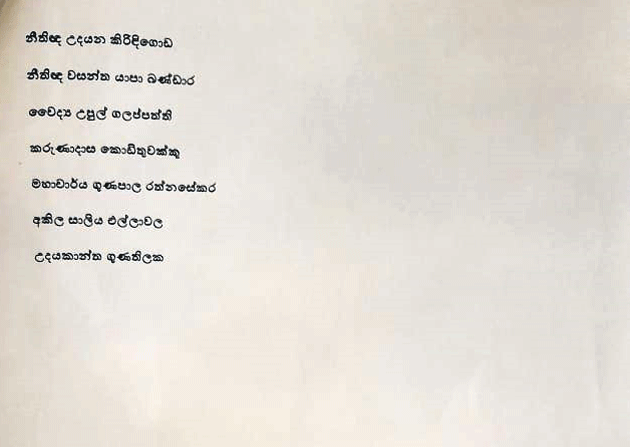 නීතිඥ උදයන කිරිඳිගොඩ
නීතිඥ වසන්ත යාපා බණ්ඩාර
වෛද්‍ය උපුල් ගලප්පත්ති
කරුණාදාස කොඩිතුවක්කු
මහාචාර්ය ගුණපාල රත්නසේකර
අකිල සාලිය එල්ලාවල
උදයකාන්ත ගුණතිලක